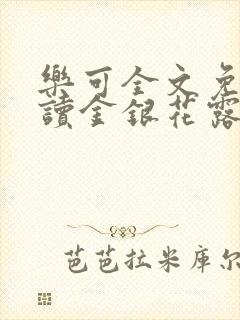 樂可全文免
讀金銀花露
芭芭拉米库尔